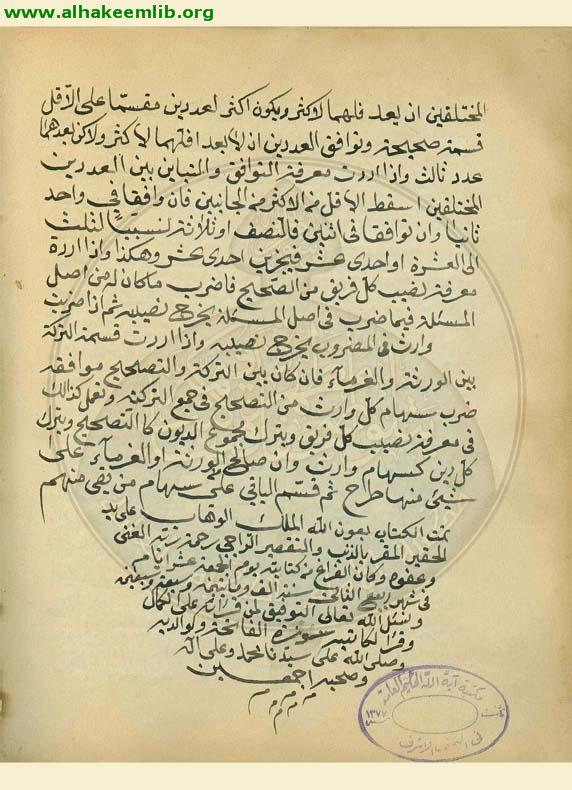 www.alhakeemlib.org
المختلفين ان يعد فلهما لاكثر ويكون اكثر لعددين مقسمّا على الآقل
قسمة صحيحة وتوافق العددين ان لا يعد اقلّهما لاكثر ولاكن يعدهما
عدد ثالث واذا اردت معرفة التوافق والمتباين بين العددين
المختلفين اسقط الاقل من الاكثر من الجانبين فان وافقا في واحد
ثانيا وان توافقا في اثنين فالنصف او ثلاثة لنسبتا لثلث
الى العشرة او احدى عشر فبجزين احدى عشر وهكذا واذا اردة
معرفة نصيب كل فريق من الصّحيح فاضرب ما كان له من اصل
المسئلة فيما ضرب في اصل المسئلة يخرج نصيبه ثم اذا ضربت
وارث في المضروب يخرج نصيبه واذا اردت قسمة التركة
بين الورثة والغرمآء فان كان بين التركة والتصحيح موافقه
ضرب سهام كل وارث من التصحيح في جمع التركة وتعمل كذالك
في معرفة نصيب كل فريق ويترك مجموع الديون كا التصحيح ويترك
كل دين كسهام وارث وان صالح الورثة او الغرمآء على
شيئ منها طرح ثم قسّم الباقى على سهام من بقى منهم
تمت الكتاب بعون الله الملك الوهاب على يد
الحقير المقر بالذنب والتقصير الراجي رحمة ربّه الغني
وعفوه وكان الفراغ من كتابته يوم الجمعة عشر ايام
في شهر ربيع الثاني سنه الف ومايتين وسبعة وتسعين
ونسئل الله تعالى التوفيق لمن قرائه على الكمال
وقرا لكاتبه سورة الفاتحة ولوالديه
وصلى الله على سيّدنا محمد وعلى آله
وصحبه اجمعين
م م م م م
مكتبة آية الله الحكيم العامة
١٣٧٧
في النجف الاشرف